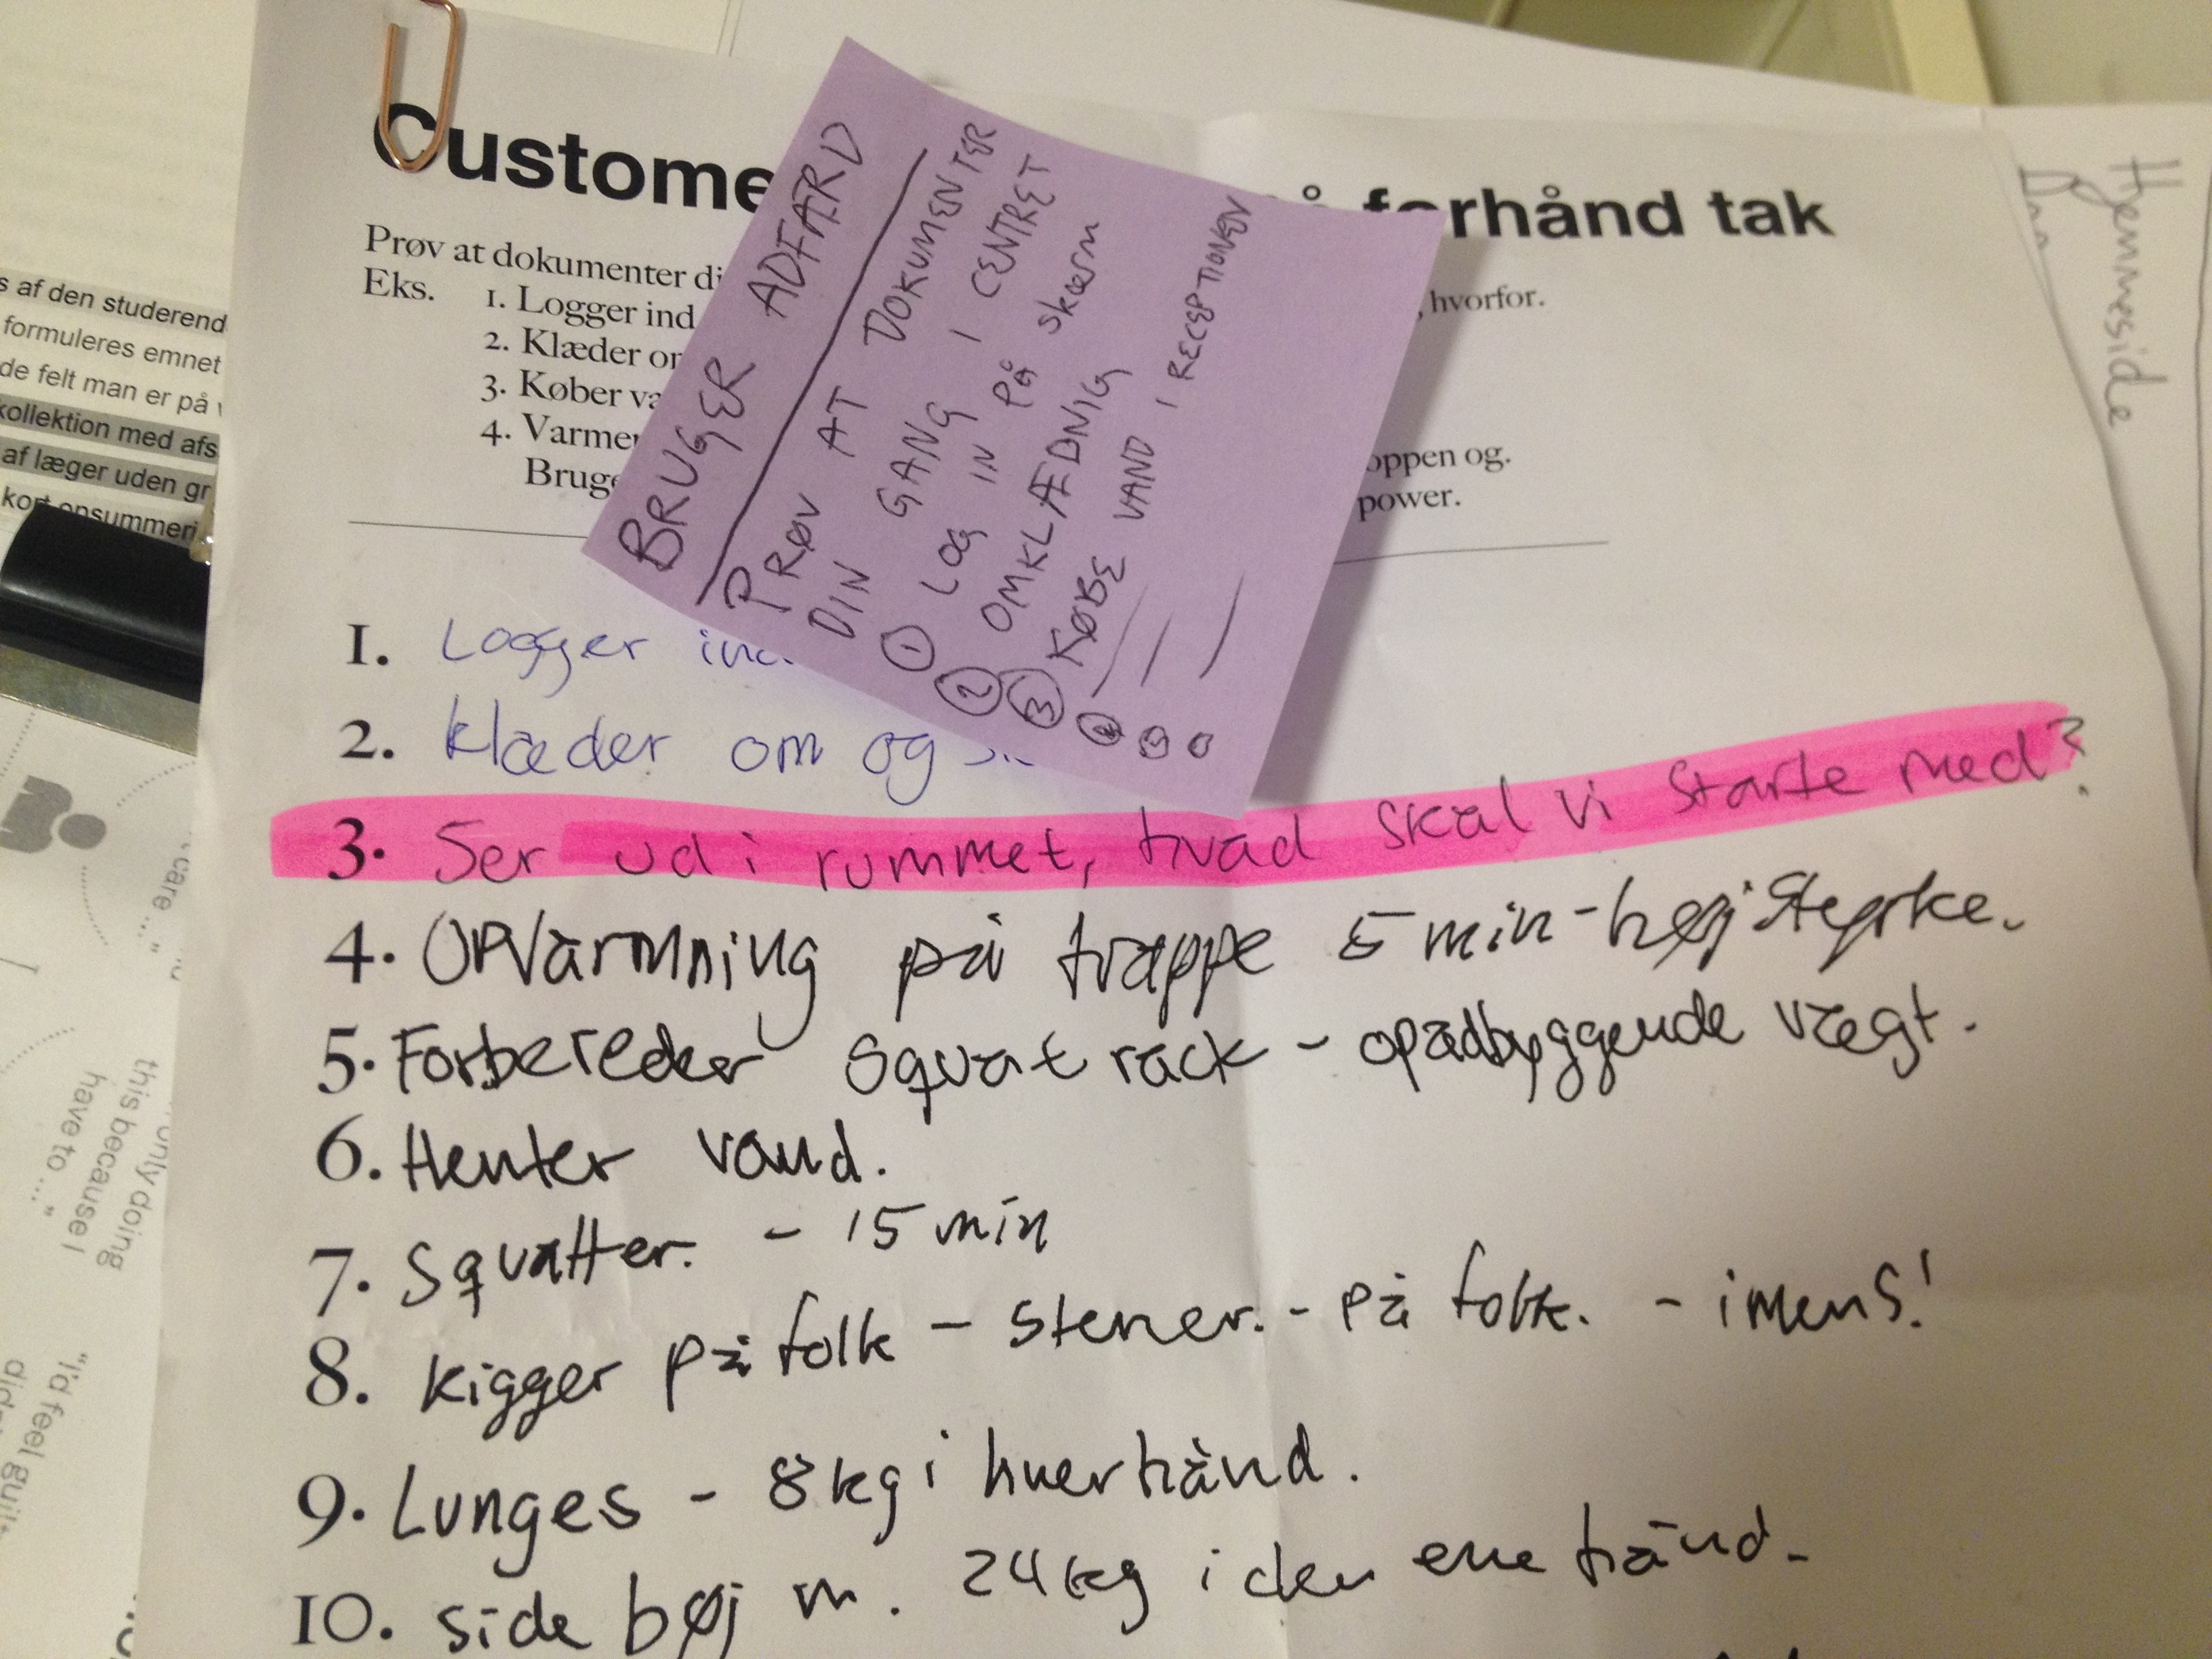 Custome på forhånd tak
Prøv at dokumenter di , hvorfor.
Eks. 1. Logger ind
2. Klæder o
3. Køber va
4. Varme oppen og.
Bruge power.
BRUGER ADFÆRD
PRØV AT DOKUMENTER
DIN GANG I CENTRET
① LOG IN PÅ skærm
② OMKLÆDNIG
③ KØBE VAND I RECEPTIONEN
1. Logger ind
2. Klæder om og
3. Ser ud i rummet, hvad skal vi starte med?
4. Opvarmning på trappe 5 min - høj styrke.
5. Forbereder squat rack - opadbyggende vægt.
6. Henter vand.
7. Squatter. - 15 min
8. Kigger på folk - stener. - på folk. - imens!
9. Lunges - 8 kg i hver hånd.
10. side bøj m. 24 kg i den ene hånd.
s af den studerend
formuleres emnet
de felt man er på v
kollektion med afs
af læger uden gr
kort opsummeri
care ..."
only doing
this because I
have to ..."
"I'd feel guilt
Hjemmeside